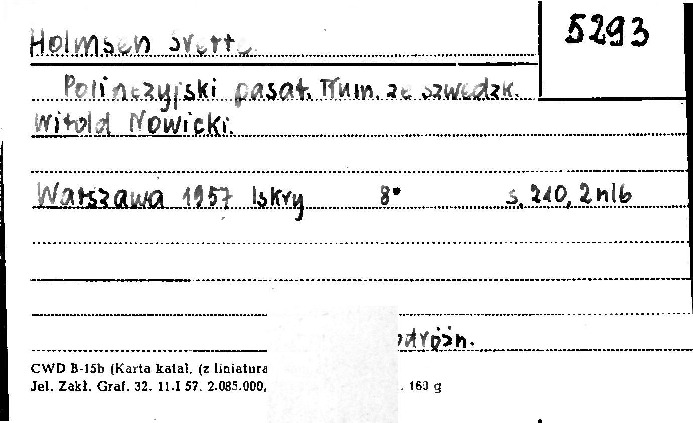 5293
Holmsen Sverre.
Polinezyjski pasat. Tłum. ze szwedzk.
Witold Nowicki.
Warszawa 1957 Iskry 8° s. 210, 2 nlb
CWD B-15b (Karta katal. (z liniatura
Jel. Zakł. Graf. 32. 11.I 57. 2.085.000, 160 g